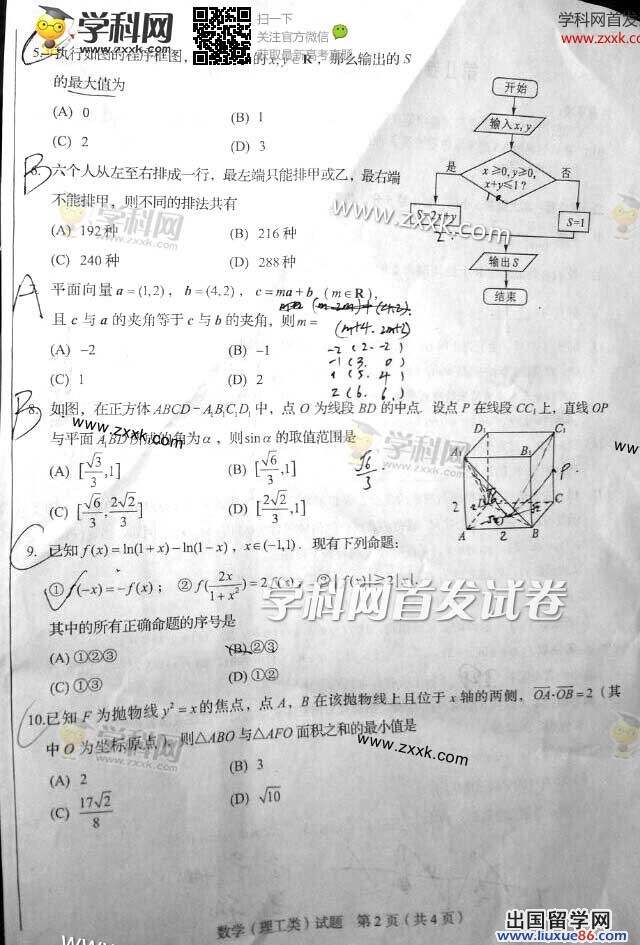 学科网
www.zxxk.com
扫一下
关注官方微信
获取最新高考真题
学科网首发
www.zxxk.
C
5. 执行如图的程序框图,的x,y∈R,那么输出的 S
的最大值为
(A) 0
(B) 1
(C) 2
(D) 3
开始
输入x,y
x≥0,y≥0,
x+y≤1?
是
否
S=2x+y
S=1
输出S
结束
B
6. 六个人从左至右排成一行,最左端只能排甲或乙,最右端
不能排甲,则不同的排法共有
(A) 192种
(B) 216种
(C) 240种
(D) 288种
学科网
www.zxxk.com
A
平面向量 a=(1,2), b=(4,2), c=ma+b (m∈R),
且 c 与 a 的夹角等于 c 与 b 的夹角,则m=
(m+4, 2m+2)
(A) -2
(B) -1
(C) 1
(D) 2
-2 (2, -2)
-1 (3, 0)
1 (5, 4)
2 (6, 6)
B
8. 如图,在正方体 ABCD-A₁B₁C₁D₁ 中,点 O 为线段 BD 的中点. 设点 P 在线段 CC₁ 上,直线 OP
与平面 A₁BD 所成的角为α,则sinα的取值范围是
(A) [√3/3,1]
(B) [√6/3,1]
√6/3
(C) [√6/3,2√2/3]
(D) [2√2/3,1]
D₁ C₁
A₁ B₁
P
D C
A B
2
2
学科网
www.zxxk.com
C
9. 已知 f(x)=ln(1+x)-ln(1-x),x∈(-1,1). 现有下列命题:
① f(-x)=-f(x); ② f(2x/(1+x²))=2f(x);
学科网首发试卷
其中的所有正确命题的序号是
(A) ①②③
(B) ②③
(C) ①③
(D) ①②
10.已知 F 为抛物线 y²=x 的焦点,点 A,B 在该抛物线上且位于 x 轴的两侧,OA·OB=2(其
中 O 为坐标原点),则△ABO 与△AFO 面积之和的最小值是
(A) 2
(B) 3
(C) 17√2/8
(D) √10
学科网
www.zxxk.com
数学(理工类)试题 第2页(共4页)
出国留学网
www.liuxue86.com